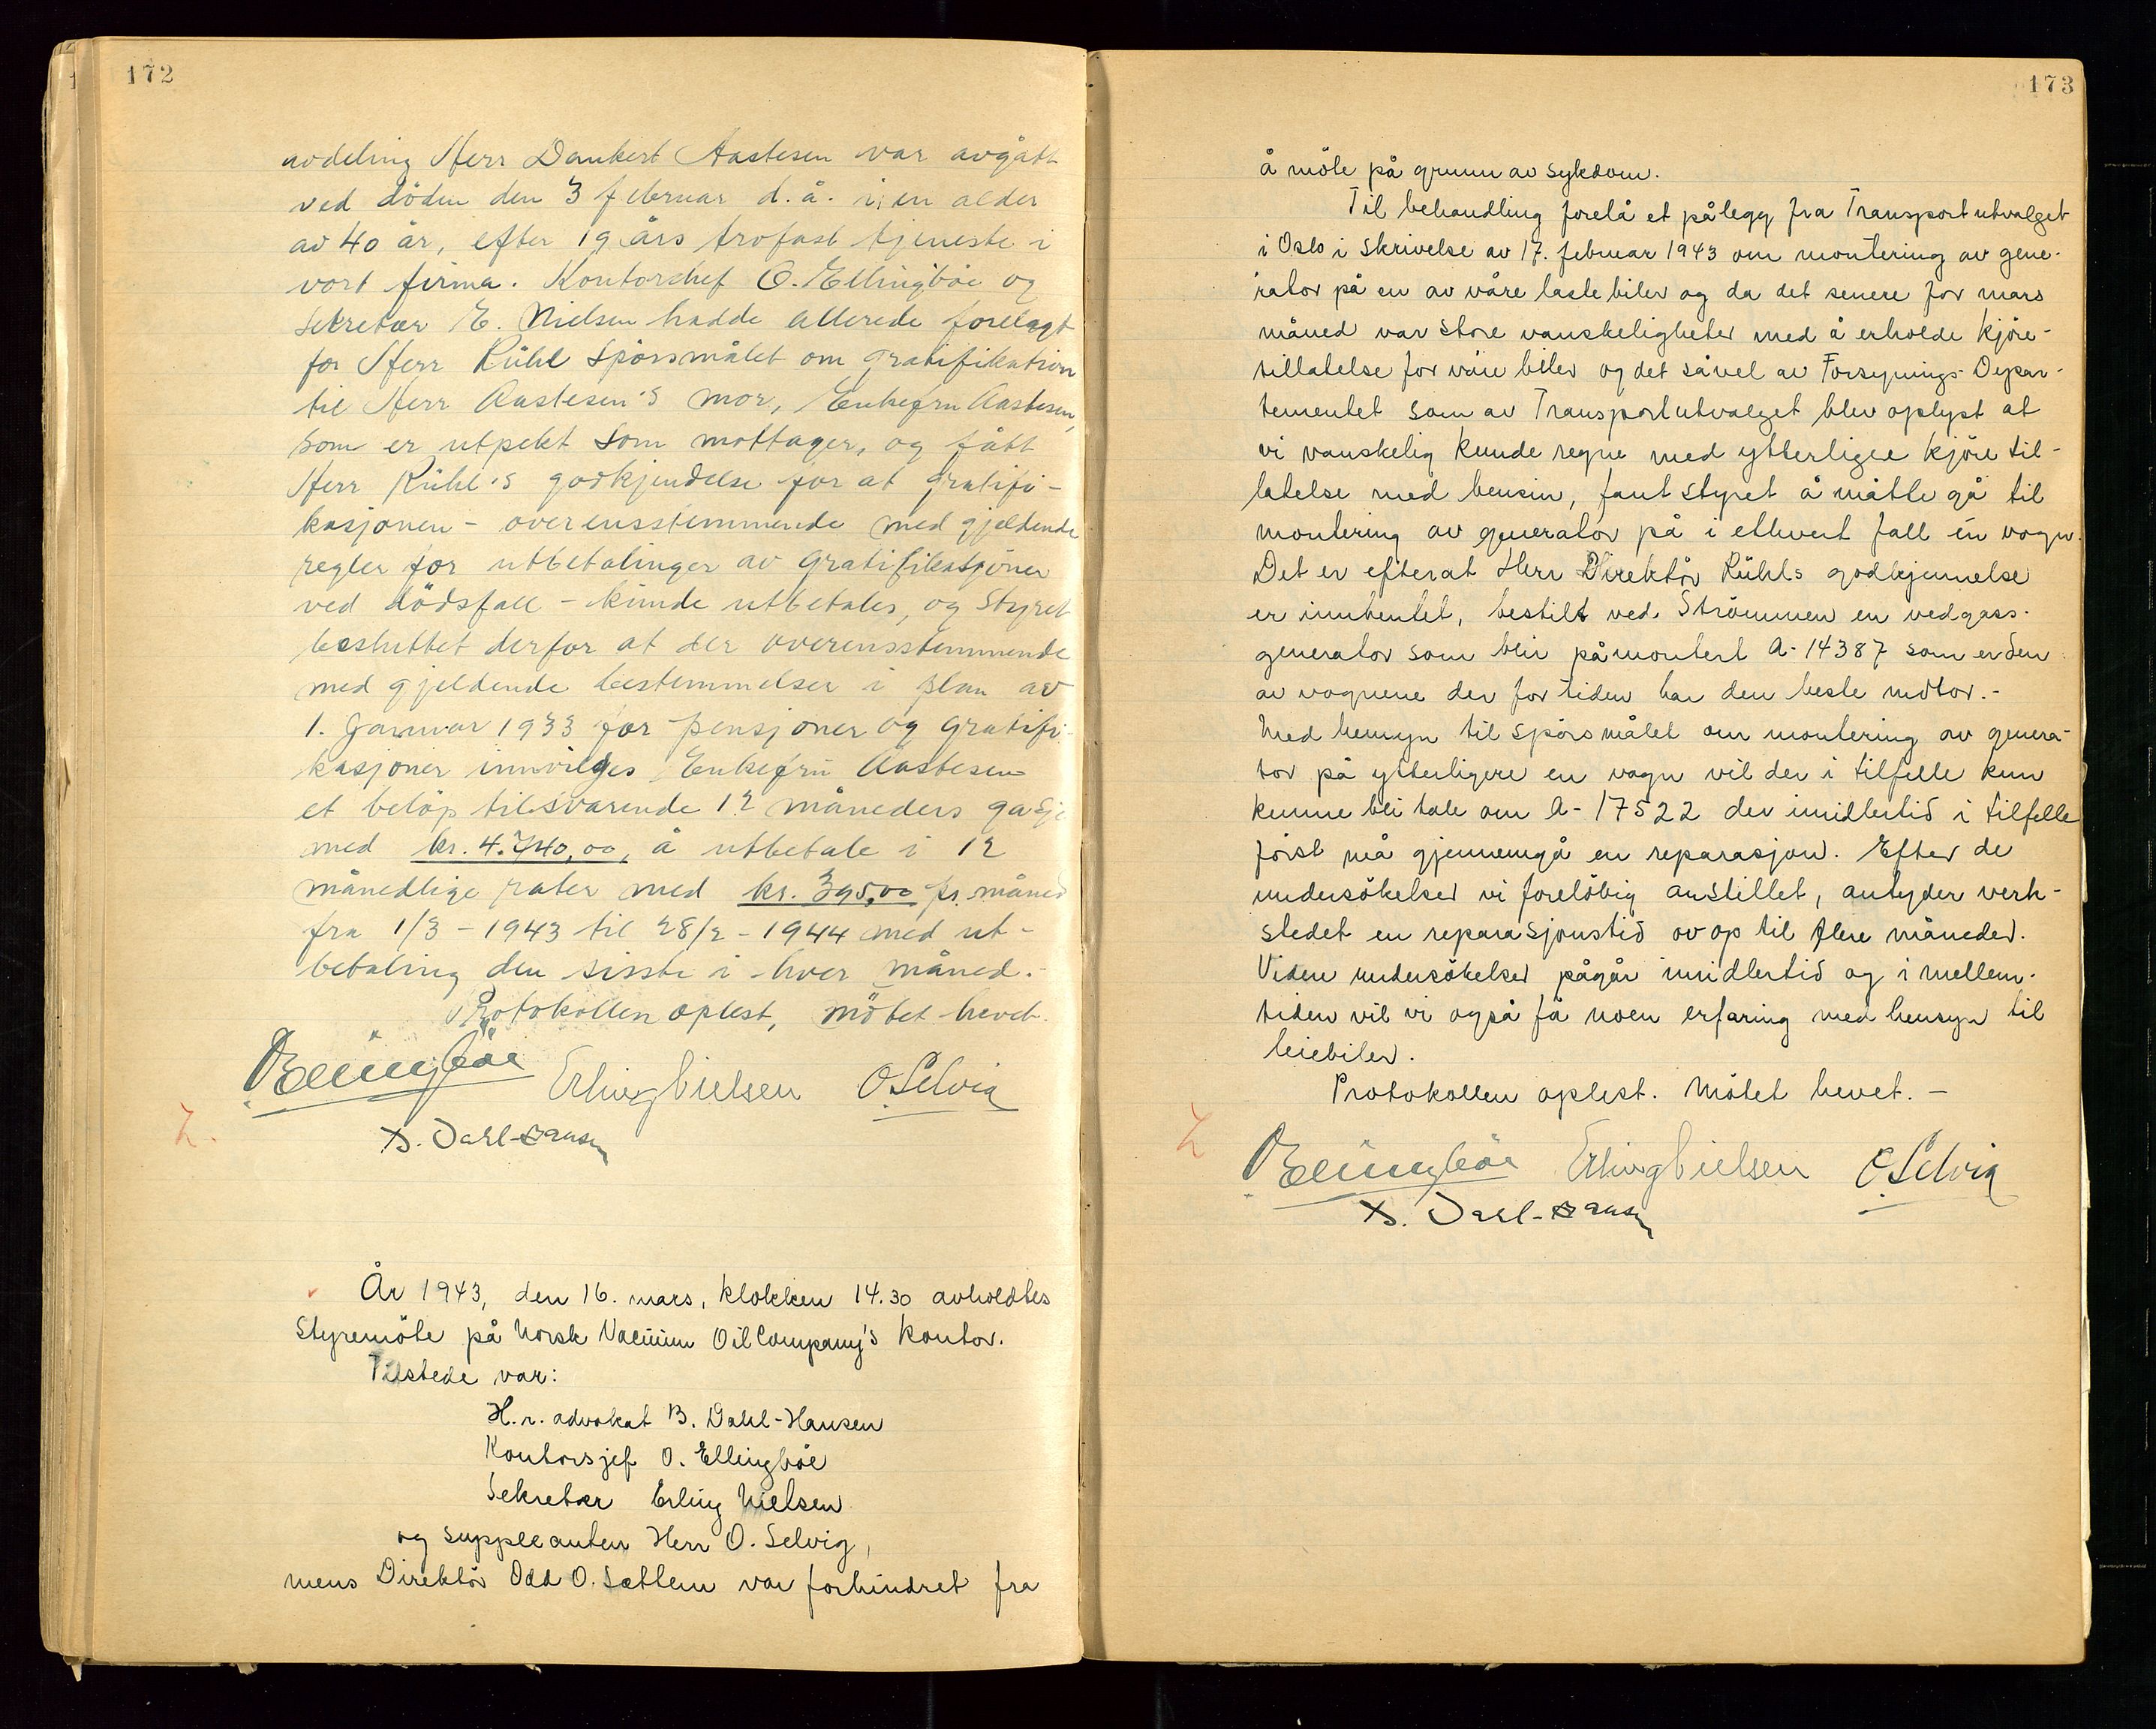 172
avdeling Herr Dankert Aastesen var avgått
ved döden den 3 februar d.å. i en alder
av 40 år, efter 19 års trofast tjeneste i
vort firma. Kontorchef O. Ellingböe og
Sekretær E. Nielsen hadde allerede forelagt
for Herr Rühl Spörsmålet om gratifikation
til Herr Aastesen's mor, Enkefru Aastesen,
som er utpekt som mottager, og fått
Herr Rühl's godkjendelse for at gratifi-
kasjonen - overensstemmende med gjeldende
regler for utbetalinger av gratifikasjoner
ved dödsfall - kunde utbetales, og Styret
besluttet derfor at der overensstemmende
med gjeldende bestemmelser i plan av
1. Januar 1933 for pensjoner og gratifi-
kasjoner innvilges Enkefru Aastesen
et belöp tilsvarende 12 måneders gasje
med kr. 4.740,00, å utbetale i 12
månedlige rater med kr. 395,00 pr. måned
fra 1/3 - 1943 til 28/2 - 1944 med ut-
betaling den siste i hver måned.
Protokollen oplest, mötet hevet.
OEllingböe Erling Nielsen O.Selvig
B. Dahl-Hansen
År 1943, den 16. mars, klokken 14.30 avholdtes
Styremöte på Norsk Vacuum Oil Company's kontor.
Tilstede var:
H.r. advokat B. Dahl-Hansen
Kontorsjef O. Ellingböe
Sekretær Erling Nielsen
og suppleanten Herr O. Selvig,
mens Direktör Odd O. Sætlem var forhindret fra
173
å möte på grunn av sykdom.
Til behandling forelå et pålegg fra Transportutvalget
i Oslo i skrivelse av 17. februar 1943 om montering av gene-
rator på en av våre lastebiler og da det senere for mars
måned var store vanskeligheter med å erholde kjöre-
tillatelse for våre biler og det såvel av Forsynings-Depar-
tementet som av Transportutvalget blev oplyst at
vi vanskelig kunde regne med ytterligere kjöretil-
latelse med bensin, fant styret å måtte gå til
montering av generator på i ethvert fall én vogn.
Det er efterat Herr Direktör Rühls godkjennelse
er innhentet, bestilt ved Strömmen en vedgass-
generator som blir påmontert A-14387 som er den
av vognene der for tiden har den beste motor.-
Med hensyn til spörsmålet om montering av genera-
tor på ytterligere en vogn vil der i tilfelle kun
kunne bli tale om A-17522 der imidlertid i tilfelle
först må gjennemgå en reparasjon. Efter de
undersökelser vi forelöbig anstillet, antyder verk-
stedet en reparasjonstid av op til flere måneder.
Viden undersökelser pågår imidlertid og i mellem-
tiden vil vi også få noen erfaring med hensyn til
leiebiler.
Protokollen oplest. Mötet hevet. -
OEllingböe Erling Nielsen O.Selvig
B. Dahl-Hansen